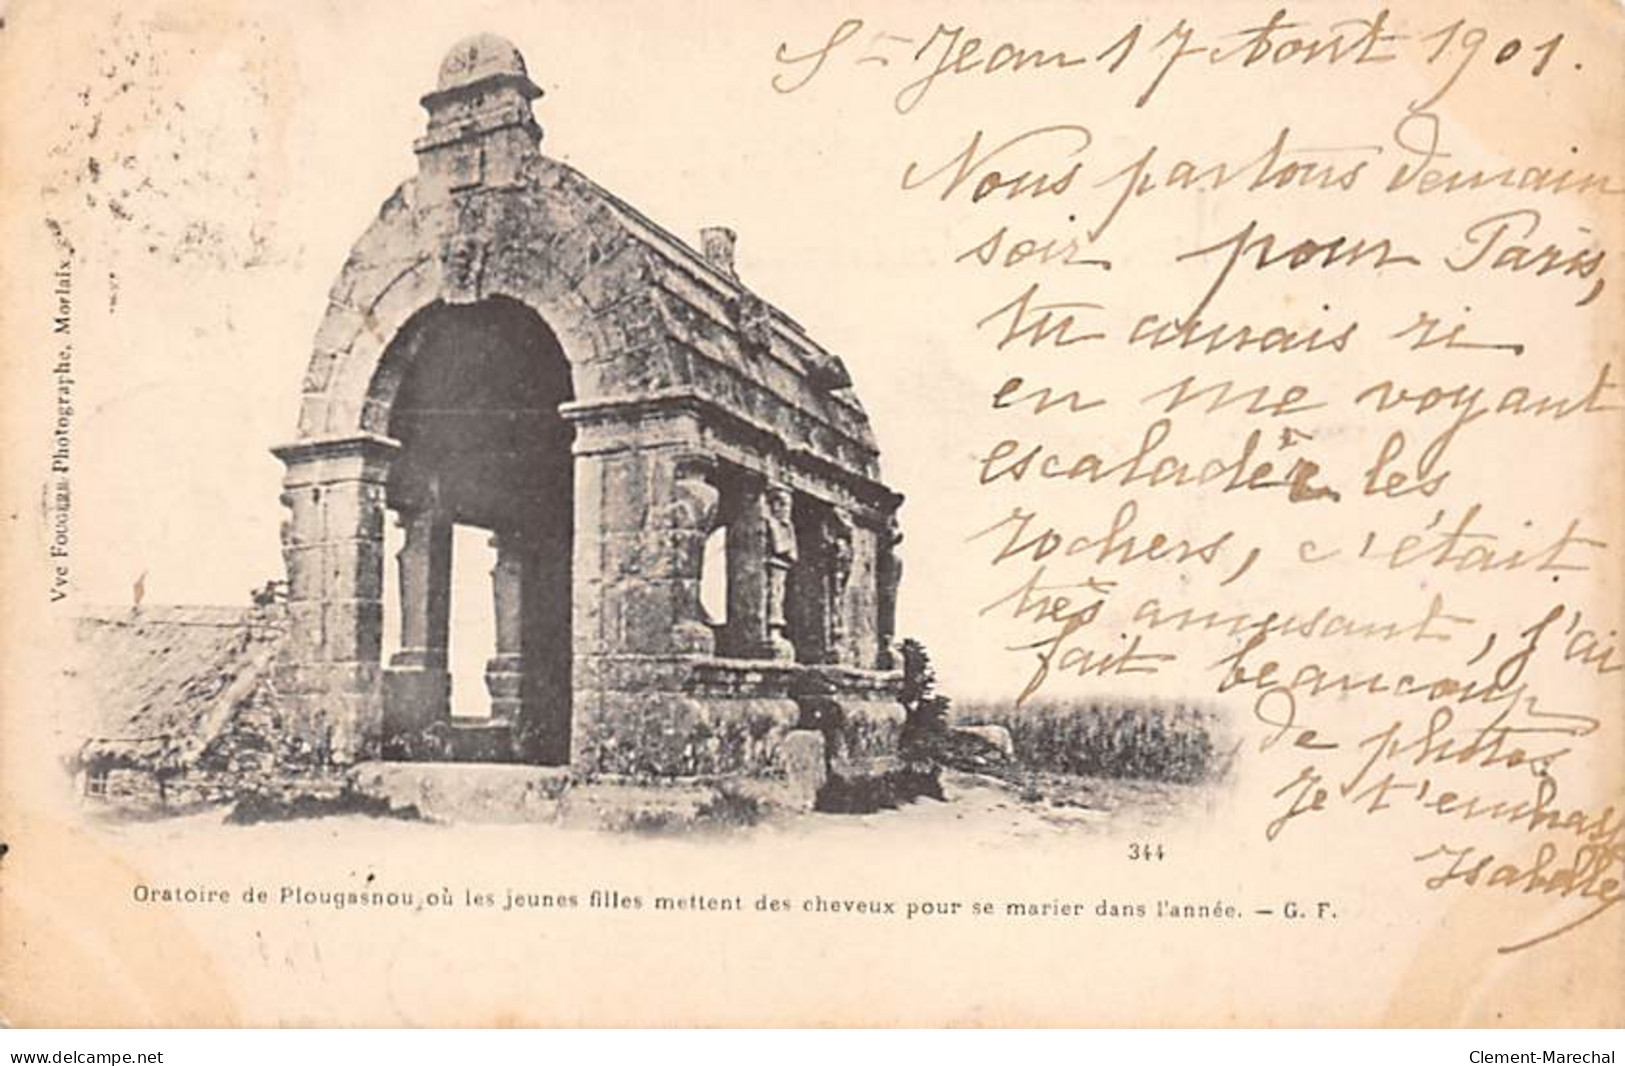 St Jean 17 Aout 1901.
Nous partons demain
soir pour Paris,
tu aurais ri
en me voyant
escalader les
rochers, c'était
très amusant, j'ai
fait beaucoup
de photos.
Je t'embrasse
Isabelle
Vve FOUGERE Photographe, Morlaix
344
Oratoire de Plougasnou, où les jeunes filles mettent des cheveux pour se marier dans l'année. — G. F.
www.delcampe.net
Clement-Marechal